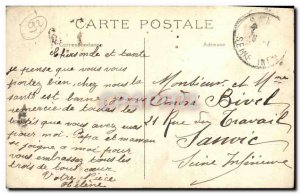 CARTE POSTALE
Correspondance
Adresse
cher oncle et tante
je pense que vous vous
portez bien, chez nous la
santé est bonne
remercie de
que vous avez
pour moi. Papa et maman
se joigne a moi pour
vous embrasser tous les
deux
Votre nièce
Hélène
Monsieur et Mme
Bivel
21 Rue du Travail
Sanvic
Seine Inférieure